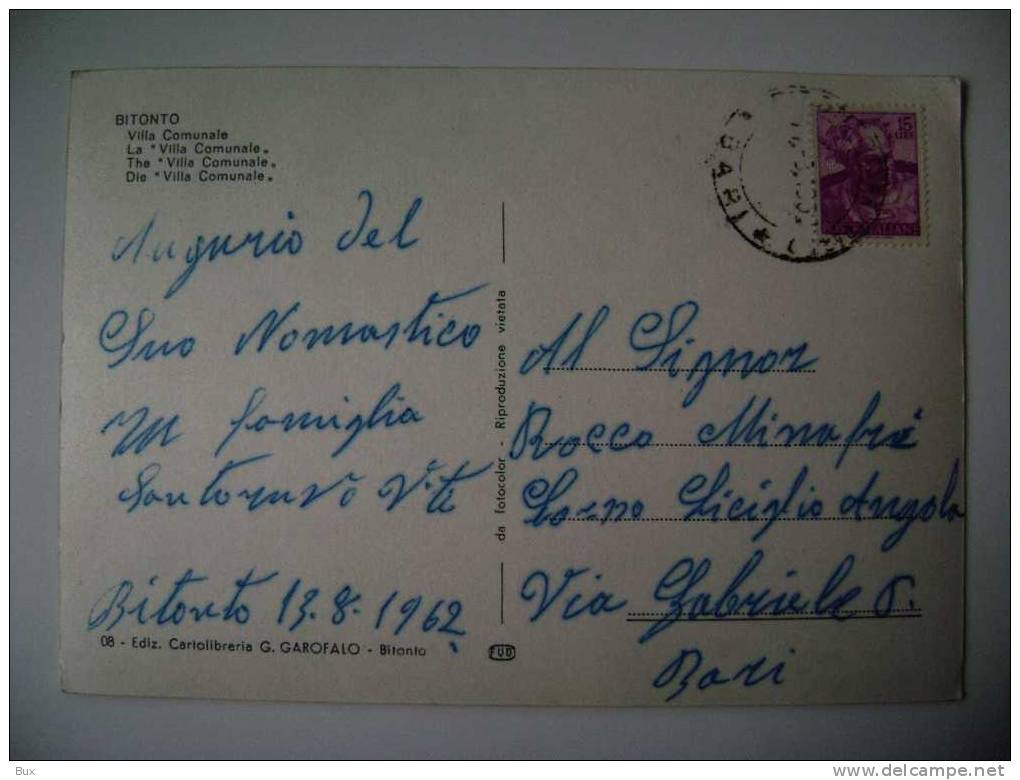 BITONTO
Villa Comunale
La "Villa Comunale„
The "Villa Comunale„
Die "Villa Comunale„
Augurio del
Suo Nomastico
famiglia
Bitonto 13.8.1962
08 - Ediz. Cartolibreria G. GAROFALO - Bitonto
da fotocolor - Riproduzione vietata
FUD
BARI
15
Al Signor
Rocco Minafré
Angolo
Via Gabriele
Bari
Bux
http://www.delcampe.net